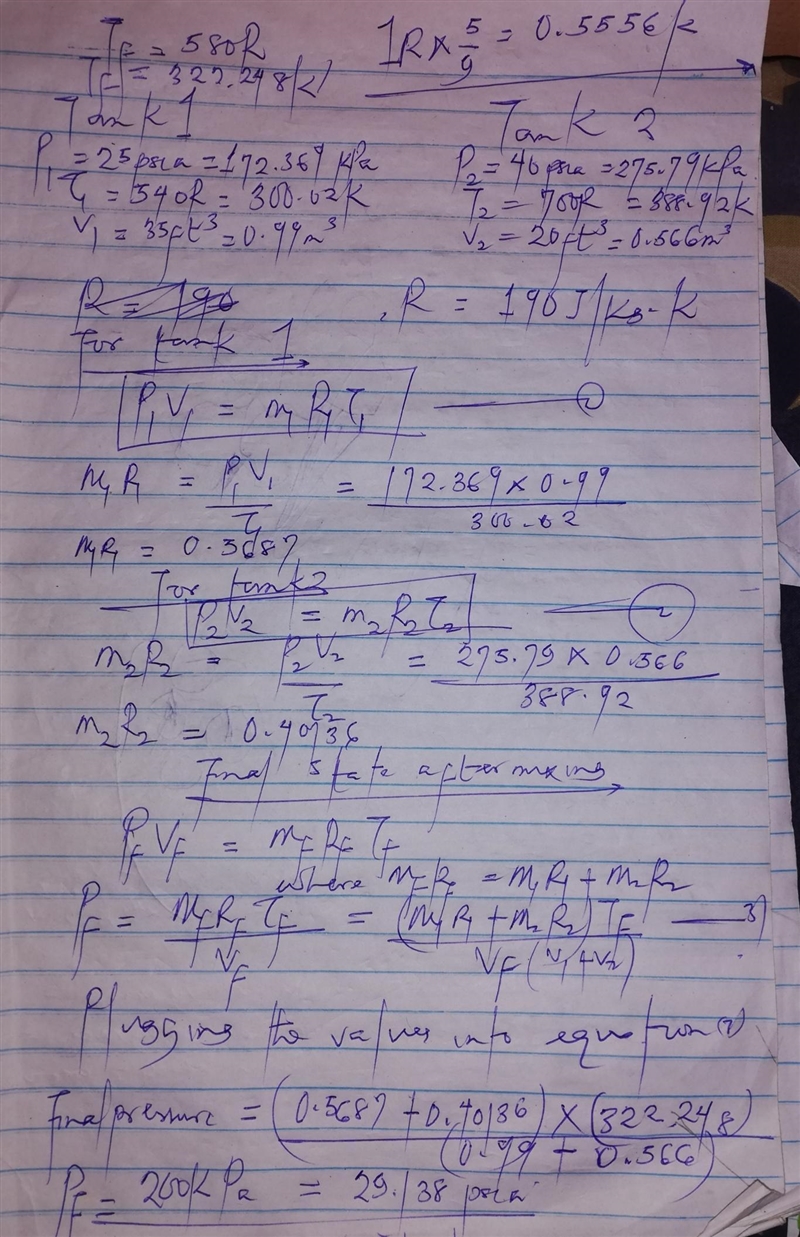 TF = 580R
1R × 5/9 = 0.5556K
TF = 322.248(K)
Tank 1
Tank 2
P1 = 25psia = 172.369 kPa
P2 = 40psia = 275.79kPa
T1 = 540R = 300.02K
T2 = 700R = 388.92K
V1 = 35ft³ = 0.99m³
V2 = 20ft³ = 0.566m³
R = 190
, R = 190J/kg-K
For tank 1
P1V1 = m1R1T1
m1R1 = P1V1/T1 = 172.369 × 0.99/300.02
m1R1 = 0.5687
For tank 2
P2V2 = m2R2T2 2
m2R2 = P2V2/T2 = 275.79 × 0.566/388.92
m2R2 = 0.40136
Final state after mixing
PFVF = mFRFTF
where mFRF = m1R1 + m2R2
PF = mFRFTF/VF = (m1R1 + m2R2)TF/VF(V1+V2) 3)
Plugging the values into equation
Final pressure = (0.5687 + 0.40136) × (322.248)/(0.99 + 0.566)
PF = 200kPa = 29.138 psia